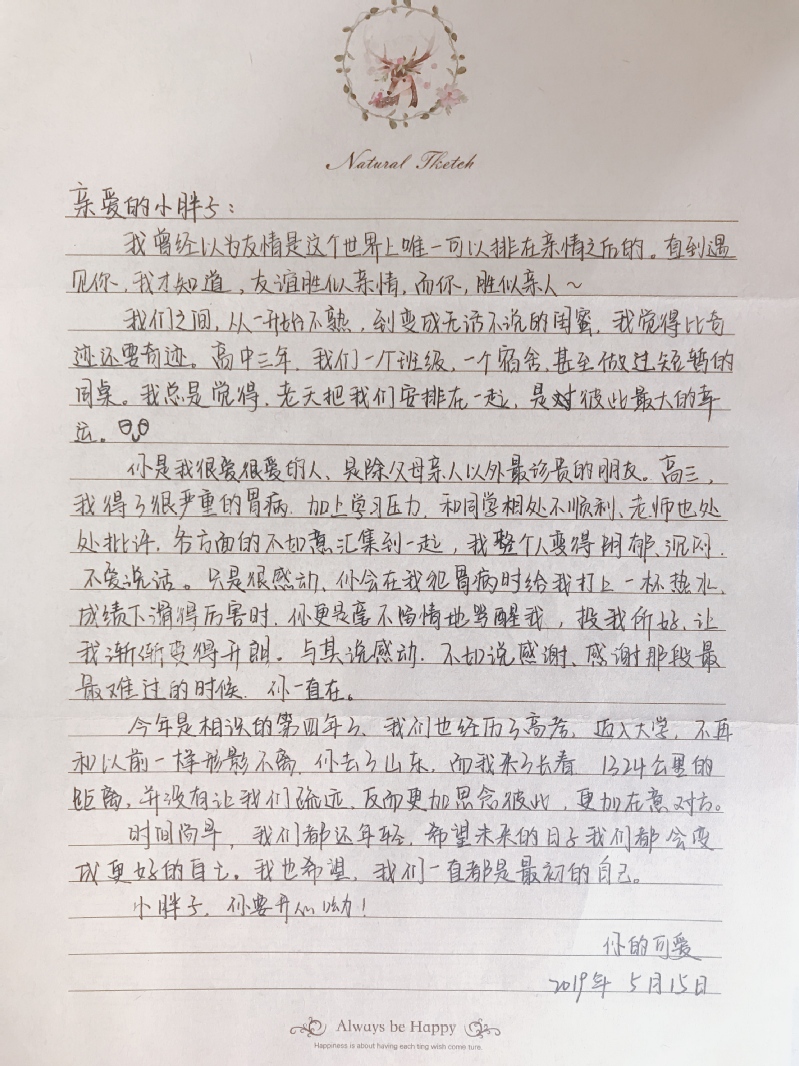 Natural Tketch
亲爱的小胖子：
我曾经以为友情是这个世界上唯一可以排在亲情之后的。直到遇
见你，我才知道，友谊胜似亲情，而你，胜似亲人～
我们之间，从一开始不熟，到变成无话不说的闺蜜，我觉得比奇
迹还要奇迹。高中三年，我们一个班级，一个宿舍，甚至做过短暂的
同桌。我总是觉得，老天把我们安排在一起，是对彼此最大的幸
运。
你是我很爱很爱的人、是除父母亲人以外最珍贵的朋友。高三，
我得了很严重的胃病，加上学习压力，和同学相处不顺利、老师也处
处批评，各方面的不如意汇集到一起，我整个人变得阴郁、沉闷，
不爱说话。只是很感动，你会在我犯胃病时给我打上一杯热水，
成绩下滑得厉害时，你更是毫不留情地骂醒我，投我所好，让
我渐渐变得开朗。与其说感动，不如说感谢、感谢那段最
最难过的时候，你一直在。
今年是相识的第四年了、我们也经历了高考，迈入大学，不再
和以前一样形影不离，你去了山东，而我来了长春，1324公里的
距离，并没有让我们疏远，反而更加思念彼此，更加在意对方。
时间尚早，我们都还年轻，希望未来的日子我们都会变
成更好的自己。我也希望，我们一直都是最初的自己。
小胖子，你要开心呦！
你的可爱
2019年 5月15日
Always be Happy
Happiness is about having each ting wish come ture.